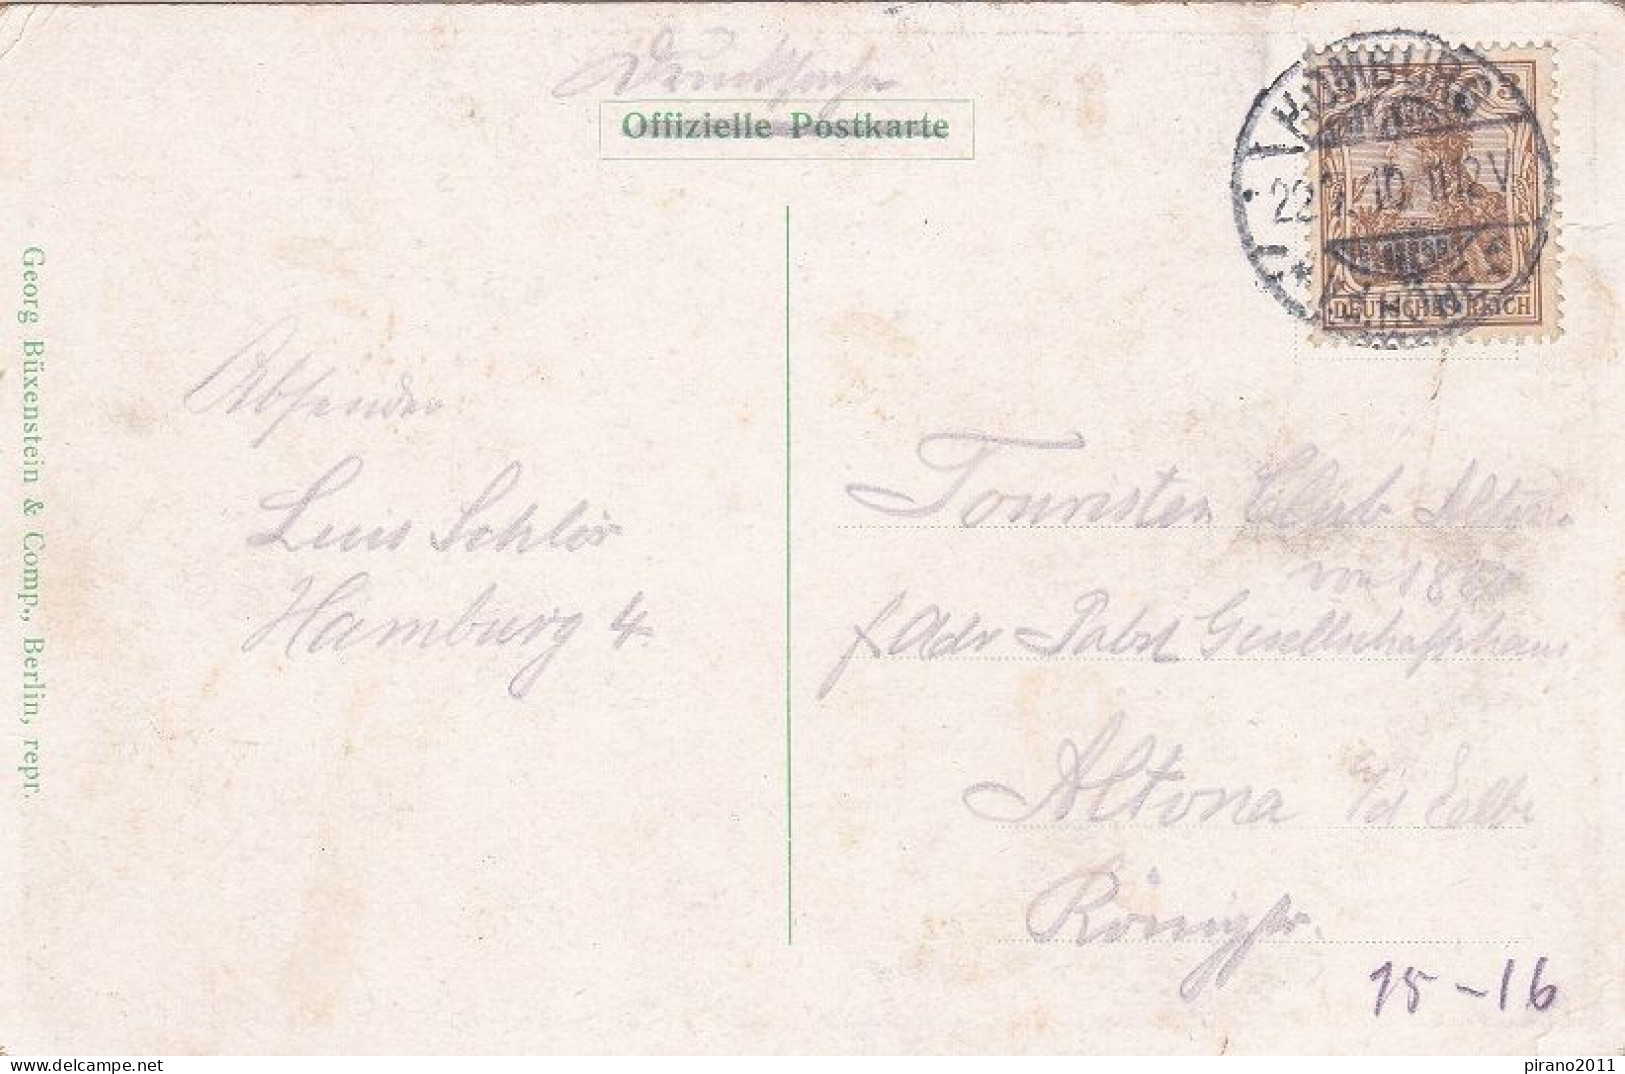 Drucksache
Offizielle Postkarte
HAMBURG
22. 10. 11-12V
DEUTSCHES REICH
Georg Büxenstein & Comp., Berlin, repr.
Absender
Luis Schlör
Hamburg 4.
Touristen Club Altona
von
f Adr Pabst Gesellschaftshaus
Altona a/d Elbe
Königstr.
15-16
pirano2011